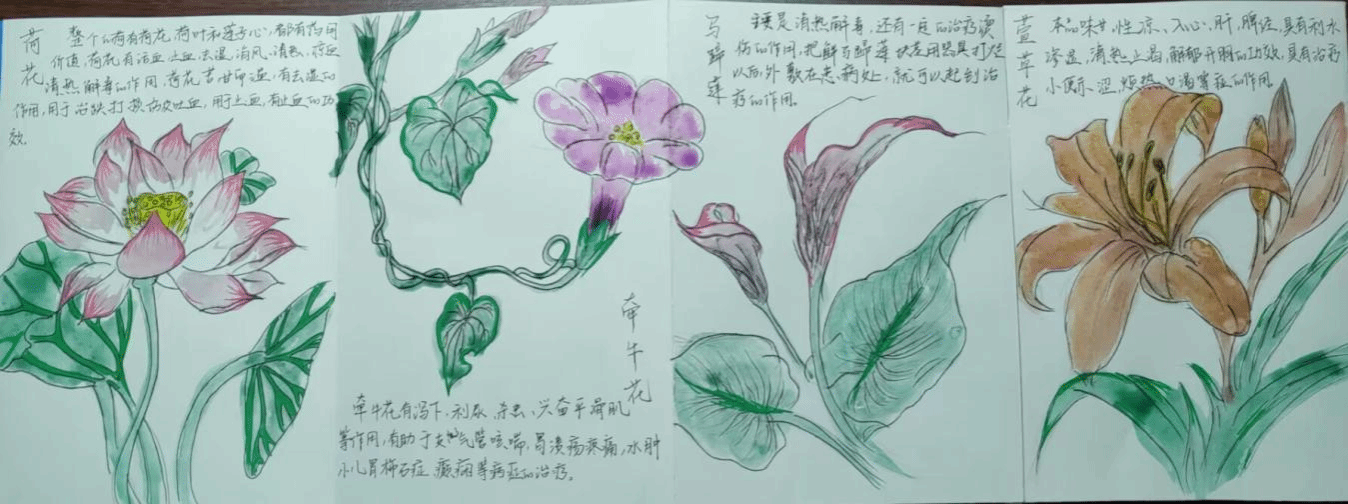 荷花
整个的荷有荷花,荷叶和莲子心,都有药用
价值,荷花有活血,止血,去湿,消风,清热,凉血
清热解毒的作用,荷花苦甘即温,有去湿的
作用,用于治跌打损伤皮吐血,用于止血,有止血的功
效。
牵牛花
牵牛花有泻下、利尿、杀虫、兴奋平滑肌
等作用,有助于支气管咳喘,胃溃疡疼痛,水肿
小儿胃柿石症 癫痫等病症的治疗。
马蹄莲
主要是清热解毒,还有一定的治疗烫
伤的作用,把新马蹄莲块茎用器具打烂
以后,外敷在患病处,就可以起到治
疗的作用。
萱草花
本品味甘,性凉、入心、肝,脾经,具有利水
渗湿,清热止渴,解郁开胸的功效,具有治疗
小便赤涩,烦热口渴等症的作用。